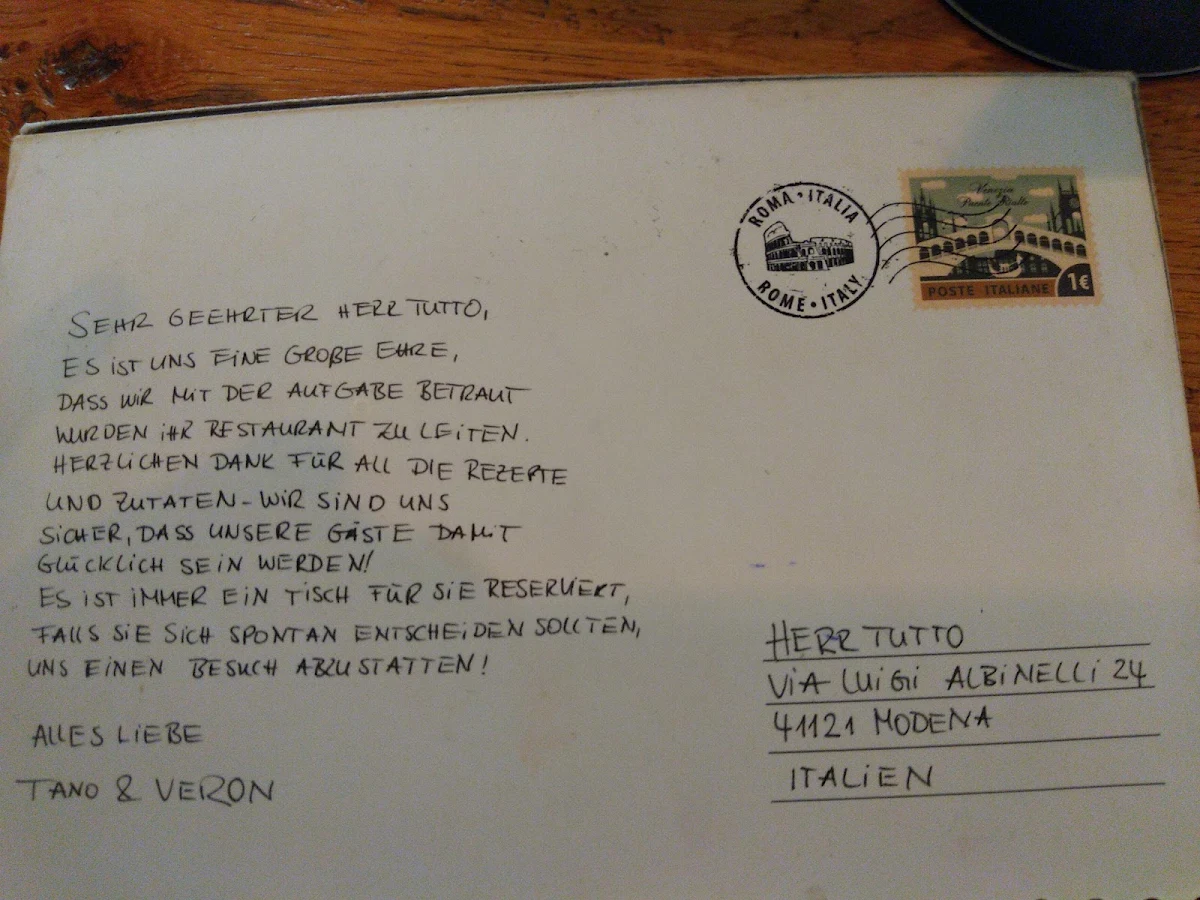 ROMA • ITALIA
ROME • ITALY
Venezia
Ponte Rialto
POSTE ITALIANE 1€
SEHR GEEHRTER HERR TUTTO,
ES IST UNS EINE GROßE EHRE,
DASS WIR MIT DER AUFGABE BETRAUT
WURDEN IHR RESTAURANT ZU LEITEN.
HERZLICHEN DANK FÜR ALL DIE REZEPTE
UND ZUTATEN - WIR SIND UNS
SICHER, DASS UNSERE GÄSTE DAMIT
GLÜCKLICH SEIN WERDEN!
ES IST IMMER EIN TISCH FÜR SIE RESERVIERT,
FALLS SIE SICH SPONTAN ENTSCHEIDEN SOLLTEN,
UNS EINEN BESUCH ABZUSTATTEN!
ALLES LIEBE
TANO & VERON
HERR TUTTO
VIA LUIGI ALBINELLI 24
41121 MODENA
ITALIEN